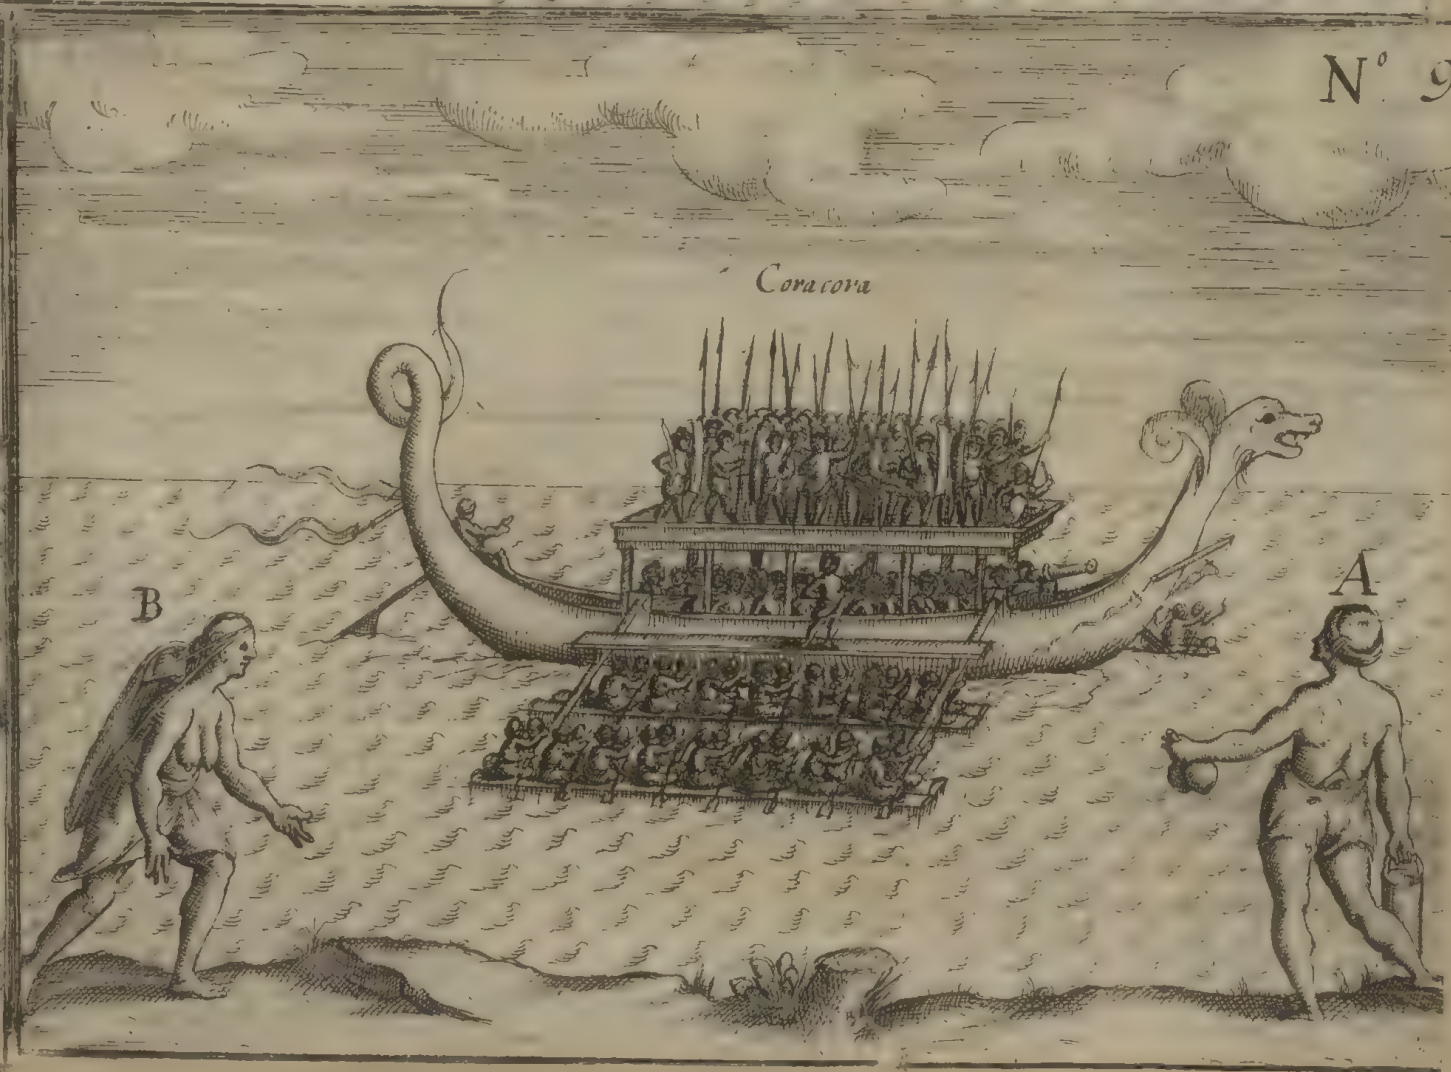 N° 9
Coracora
A
B